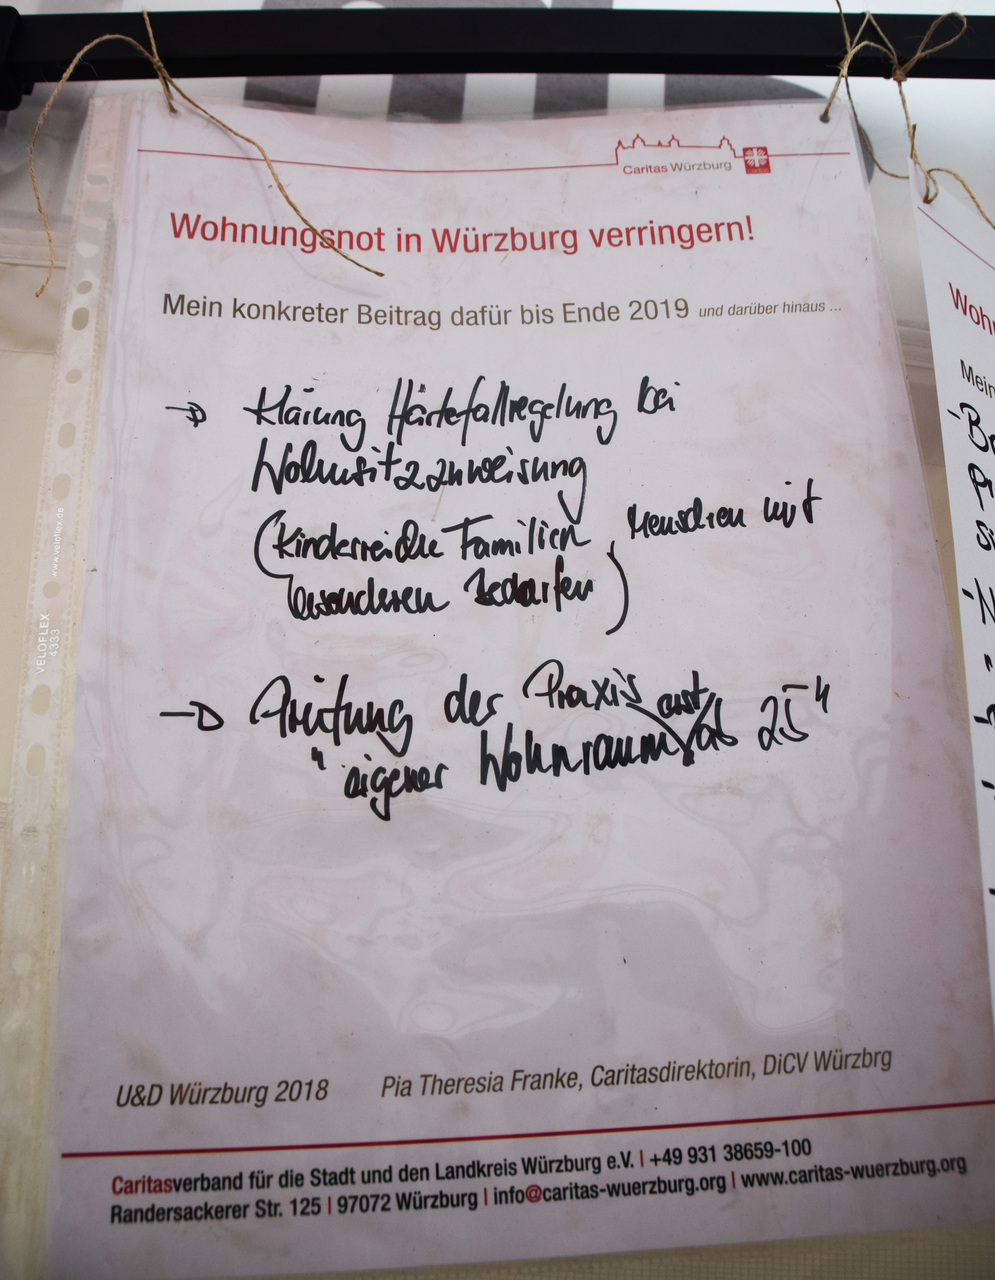 Caritas Würzburg
Wohnungsnot in Würzburg verringern!
Mein konkreter Beitrag dafür bis Ende 2019 und darüber hinaus ...
→ Klärung Härtefallregelung bei
Wohnsitzzuweisung
(Kinderreiche Familien, Menschen mit
besonderen Bedarfen)
→ Prüfung der Praxis erst
"eigener Wohnraum ab 25"
U&D Würzburg 2018 Pia Theresia Franke, Caritasdirektorin, DiCV Würzbrg
Caritasverband für die Stadt und den Landkreis Würzburg e.V. | +49 931 38659-100
Randersackerer Str. 125 | 97072 Würzburg | info@caritas-wuerzburg.org | www.caritas-wuerzburg.org
VELOFLEX
4333
www.veloflex.de
Woh
Mein